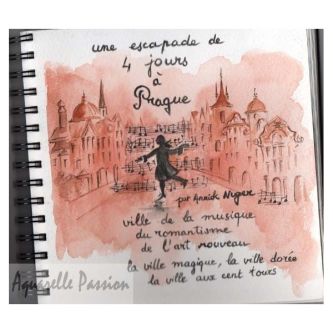 une escapade de
4 jours
à
Prague
par Annick
ville de la musique
du romantisme
de l'art nouveau
la ville magique, la ville dorée
la ville aux cent tours
Aquarelle Passion